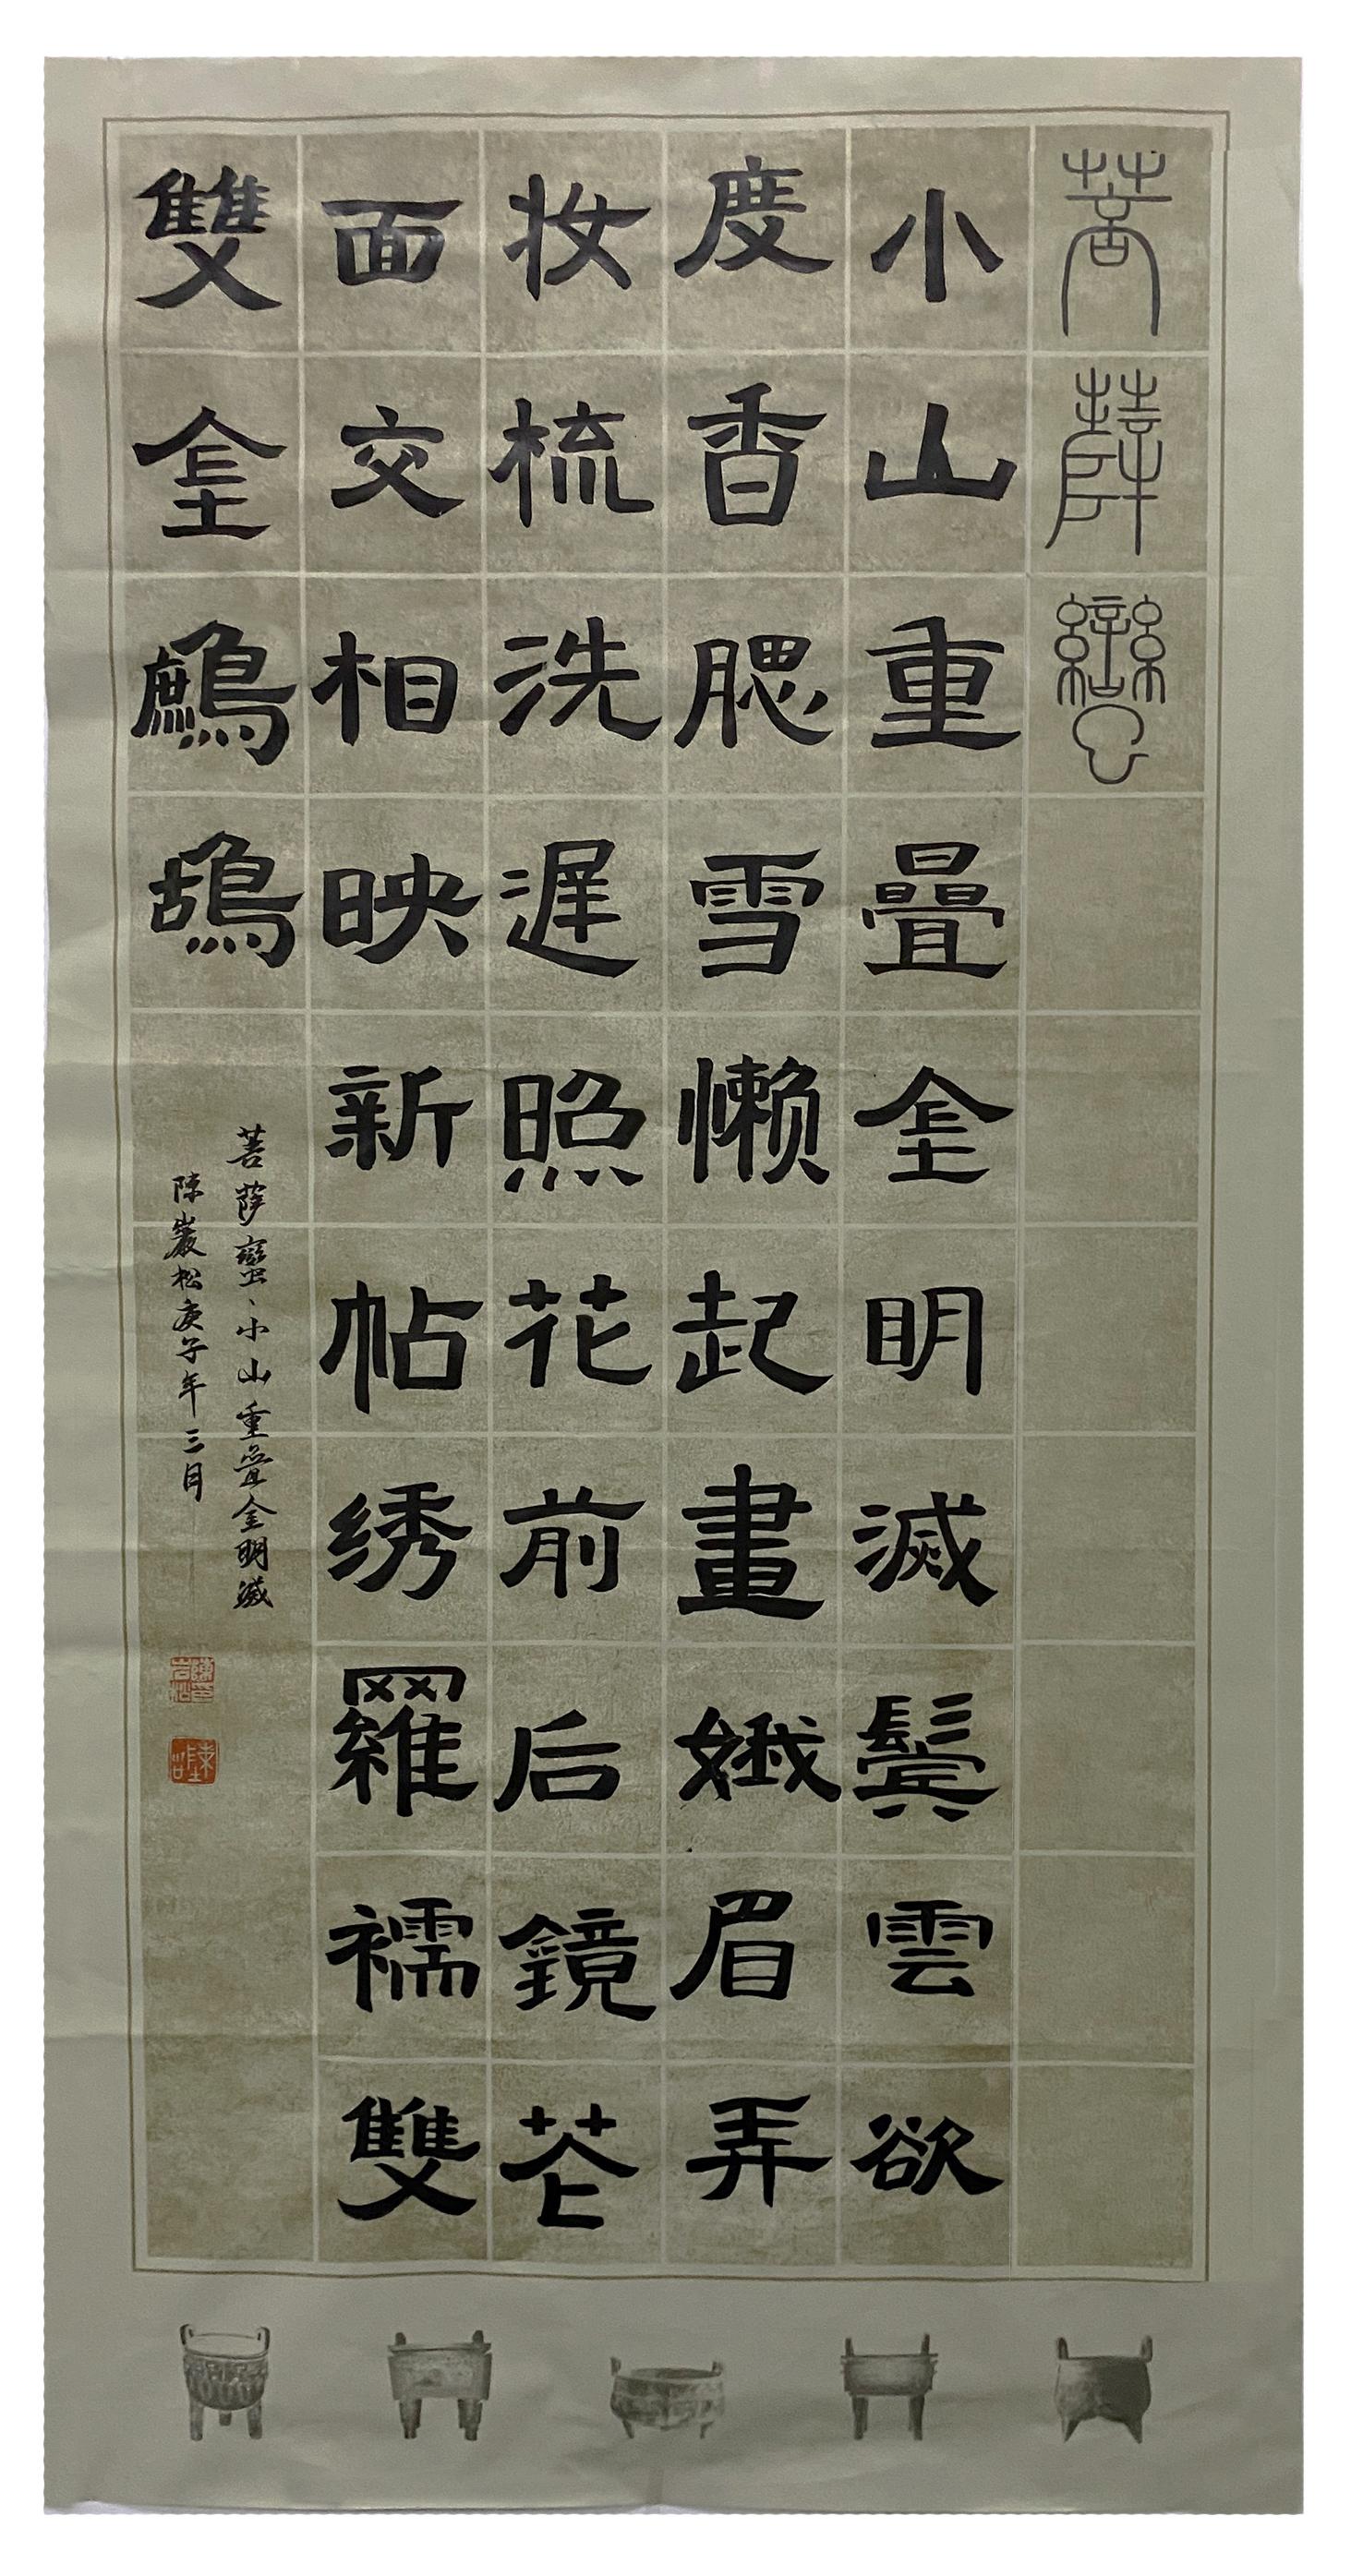 菩薩蠻
小山重疊金明滅鬓雲欲
度香腮雪懒起畫娥眉弄
妝梳洗遲照花前后鏡花
面交相映新帖绣羅襦雙
雙金鷓鴣
菩薩蠻、小山重疊金明滅
陳巖松庚子年三月